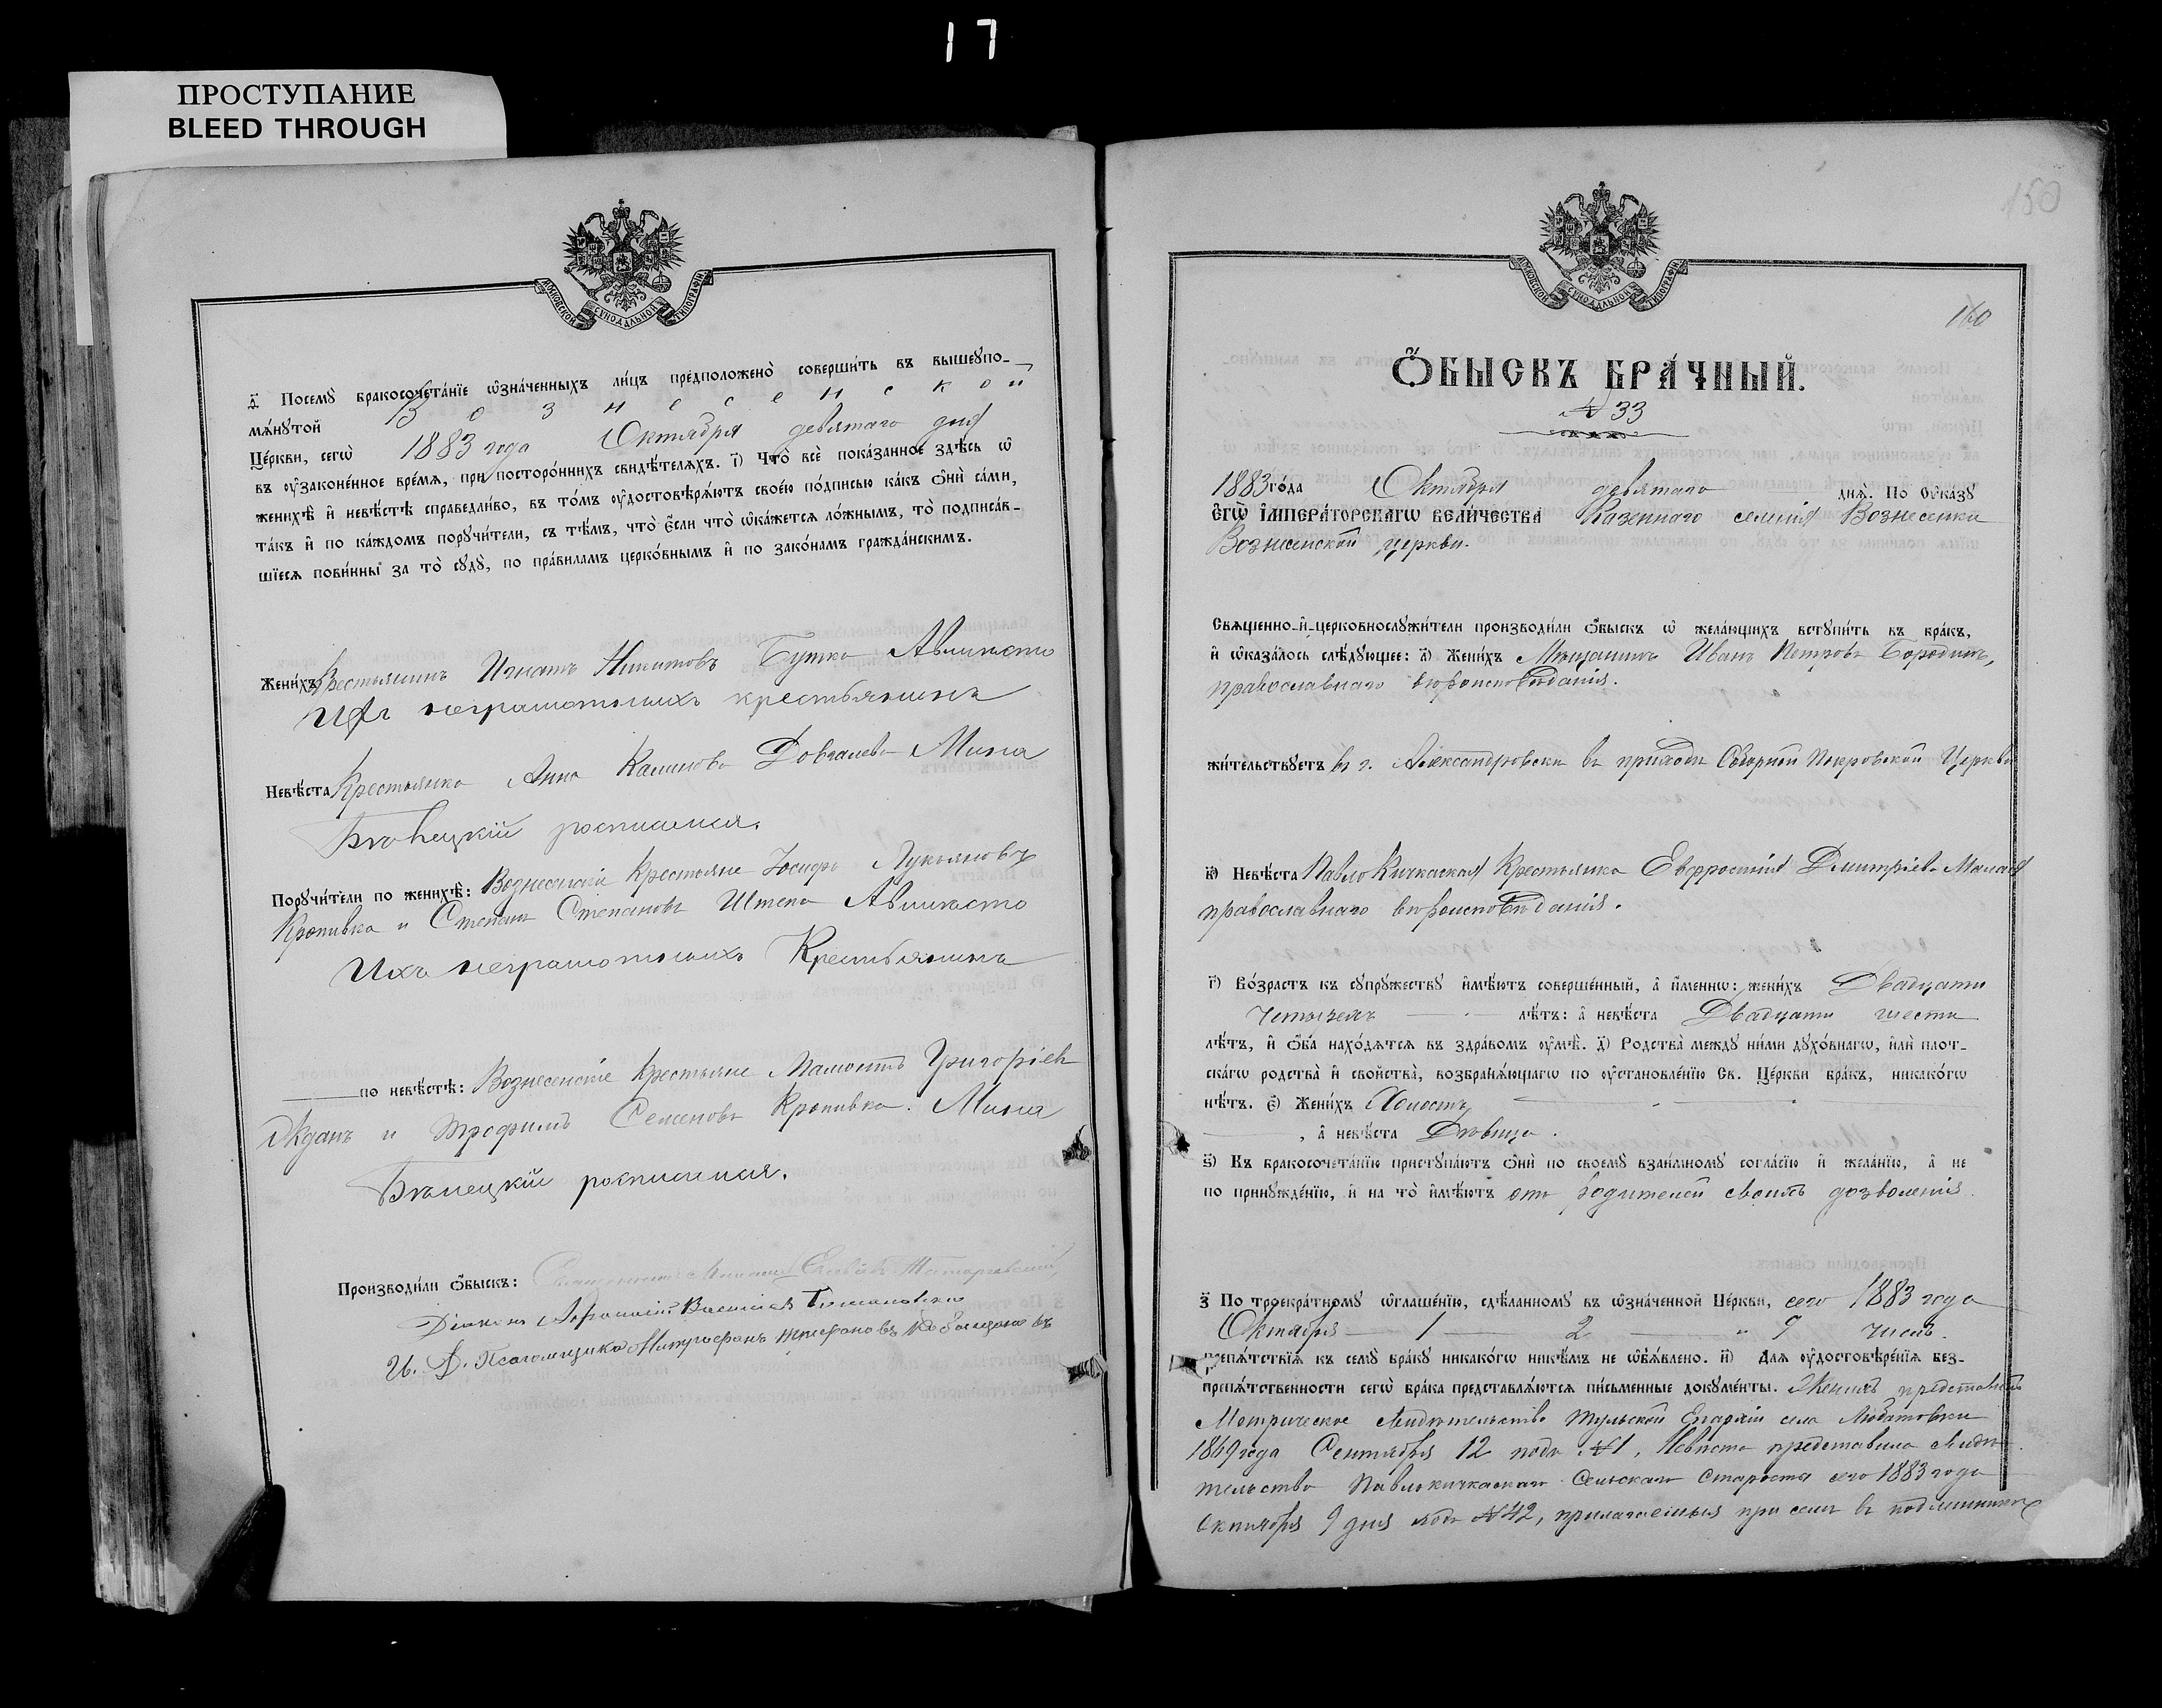 17
ПРОСТУПАНИЕ
BLEED THROUGH
МОСКОВСКОЙ СУНОДАЛЬНОЙ ТИПОГРАФІИ
д҃ Посемꙋ̀ бракосочета́нїе ѡ҆зна́ченныхъ ли́цъ предположено̀ соверши́ть въ вышеꙋпо-
мѧ́нꙋтой Вознесенской
Це́ркви, сегѡ̀ 1883 года Октября девятаго дня
въ ᲂу҆законе́нное вре́мѧ, при посторо́ннихъ свидѣ́телѧхъ. і҃) Что̀ всѐ пока́занное здѣ́сь ѡ҆
женихѣ̀ и҆ невѣ́стѣ справедли́во, въ то́мъ ᲂу҆достовѣрѧ́ютъ свое́ю по́дписью ка́къ ѻ҆нѝ са́ми,
та́къ и҆ по ка́ждомъ порꙋчи́тели, съ тѣ́мъ, что̀ є҆́сли что̀ ѡ҆ка́жетсѧ ло́жнымъ, то̀ подписа́в-
шїесѧ пови́нны за то̀ сꙋдꙋ̀, по пра́виламъ церко́внымъ и҆ по зако́намъ гражда́нскимъ.
Жени́хъ Крестьянинъ Игнатъ Никитовъ Бутко Авмѣсто
ихъ неграмотныхъ крестьянинъ
Невѣ́ста Крестьянка Анна Калинова Довгалева Мина
Бѣвецкій росписался.
Порꙋчи́тели по женихѣ̀: Вознесенскіе Крестьяне Іосифъ Лукьяновъ
Кропивка и Степанъ Степановъ Штепа Авмѣсто
Ихъ неграмотныхъ Крестьянинъ
по невѣ́стѣ: Вознесенскіе Крестьяне Мамонтъ Григоріев
Жданъ и Трофимъ Семеновъ Кропивка. Мина
росписался.
Производи́ли ѻ҆́быскъ: Священникъ
Діаконъ Василіев
И. д. Псаломщика Митрофанъ
150
МОСКОВСКОЙ СУНОДАЛЬНОЙ ТИПОГРАФІИ
160
Ѻ҆́БЫСКЪ БРА́ЧНЫЙ.
№ 33
1883 го́да Октября девятаго днѧ̀. По Оу҆ка́зꙋ
Є҆гѡ̀ І҆мпера́торскагѡ Вели́чества Казеннаго селенія Вознесенки
Вознесенской церкви.
Свѧщенно-и҆-церковнослꙋжи́тели производи́ли ѻ҆́быскъ ѡ҆ жела́ющихъ встꙋпи́ть въ бра́къ,
и҆ ѡ҆каза́лось слѣ́дꙋющее: а҃) Жени́хъ Мѣщанинъ Иванъ Петровъ Бородинъ,
православнаго вѣроисповѣданія.
жи́тельствꙋетъ въ г. Александровскѣ въ приходѣ Соборной Покровской Церкви
в҃) Невѣ́ста Павло Кичкаская Крестьянка Евфросинія Дмитріева Малая
православнаго вѣроисповѣданія.
г҃) Во́зрастъ къ сꙋпрꙋ́жествꙋ и҆мѣ́ютъ соверше́нный, а҆ и҆́меннѡ: жени́хъ Двадцати
четырехъ лѣ́тъ: а҆ невѣ́ста Двадцати шести
лѣ́тъ, и҆ ѻ҆́ба нахо́дѧтсѧ въ здра́вомъ ᲂу҆мѣ̀. д҃) Родства̀ междꙋ ни́ми дꙋхо́внагѡ, и҆лѝ плот-
ска́гѡ родства̀ и҆ свойства̀, возбранѧ́ющагѡ по ᲂу҆становле́нїю Св. Це́ркви бра́къ, никако́гѡ
нѣ́тъ. є҃) Жени́хъ Холостъ
, а҆ невѣ́ста Дѣвица.
ѕ҃) Къ бракосочета́нїю пристꙋпа́ютъ ѻ҆нѝ по своемꙋ̀ взаи́мномꙋ согла́сїю и҆ жела́нїю, а҆ не
по принꙋжде́нїю, и҆ на то̀ и҆мѣ́ютъ отъ Родителей своихъ дозволенія.
з҃ По троекра́тномꙋ ѡ҆глаше́нїю, сдѣ́ланномꙋ въ ѡ҆зна́ченной Це́ркви, сего 1883 года
Октября 1 2 и 9 числъ
препѧ́тствїѧ къ семꙋ̀ бра́кꙋ никако́гѡ никѣ́мъ не ѡ҆б̾ѧ́влено. и҃) Длѧ ᲂу҆достовѣре́нїѧ без-
препѧ́тственности сегѡ̀ бра́ка представлѧ́ютсѧ пи́сьменные докꙋме́нты. Женихъ представилъ
Метрическое свидѣтельство Тульской Епархіи села
1869 года Сентября 12 подъ №1, Невѣста представила свидѣ-
тельство Павлокичкаскаго Сельскаго Старосты сего 1883 года
Октября 9 дня подъ №42, прилагаемыя при семъ въ подлинникѣ